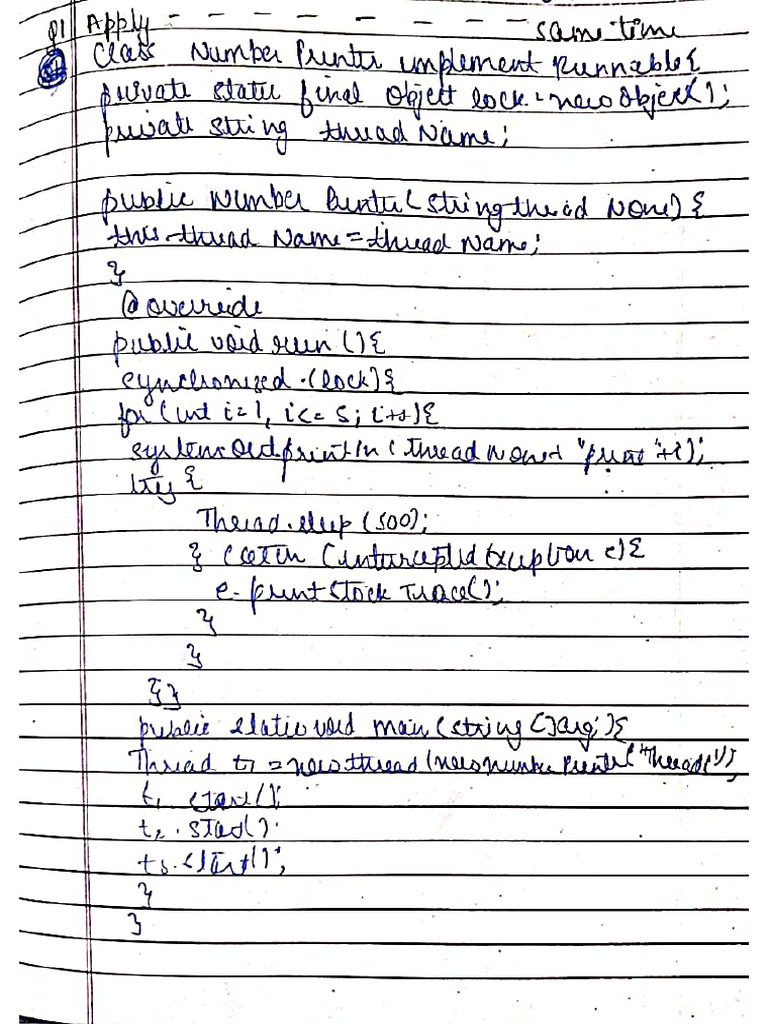 Q1 Apply - - - - - - - - - same time
Class Number Printer implement Runnable{
private static final Object lock = new Object();
private string thread Name;
public Number Printer (string thread Name) {
this.thread Name = thread Name;
}
@override
public void run () {
synchronized.(lock) {
for (int i=1, i<= 5; i++) {
system.out.println (thread Name + "print" +i);
try {
Thread.sleep (500);
} catch (interrupted Exception e) {
e. print Stack Trace();
}
}
}}
public static void main (string []arg) {
Thread t1 = new thread (new number Printer ("Thread (1")),
t1. start ();
t2. start ()
t3. start ();
}
}